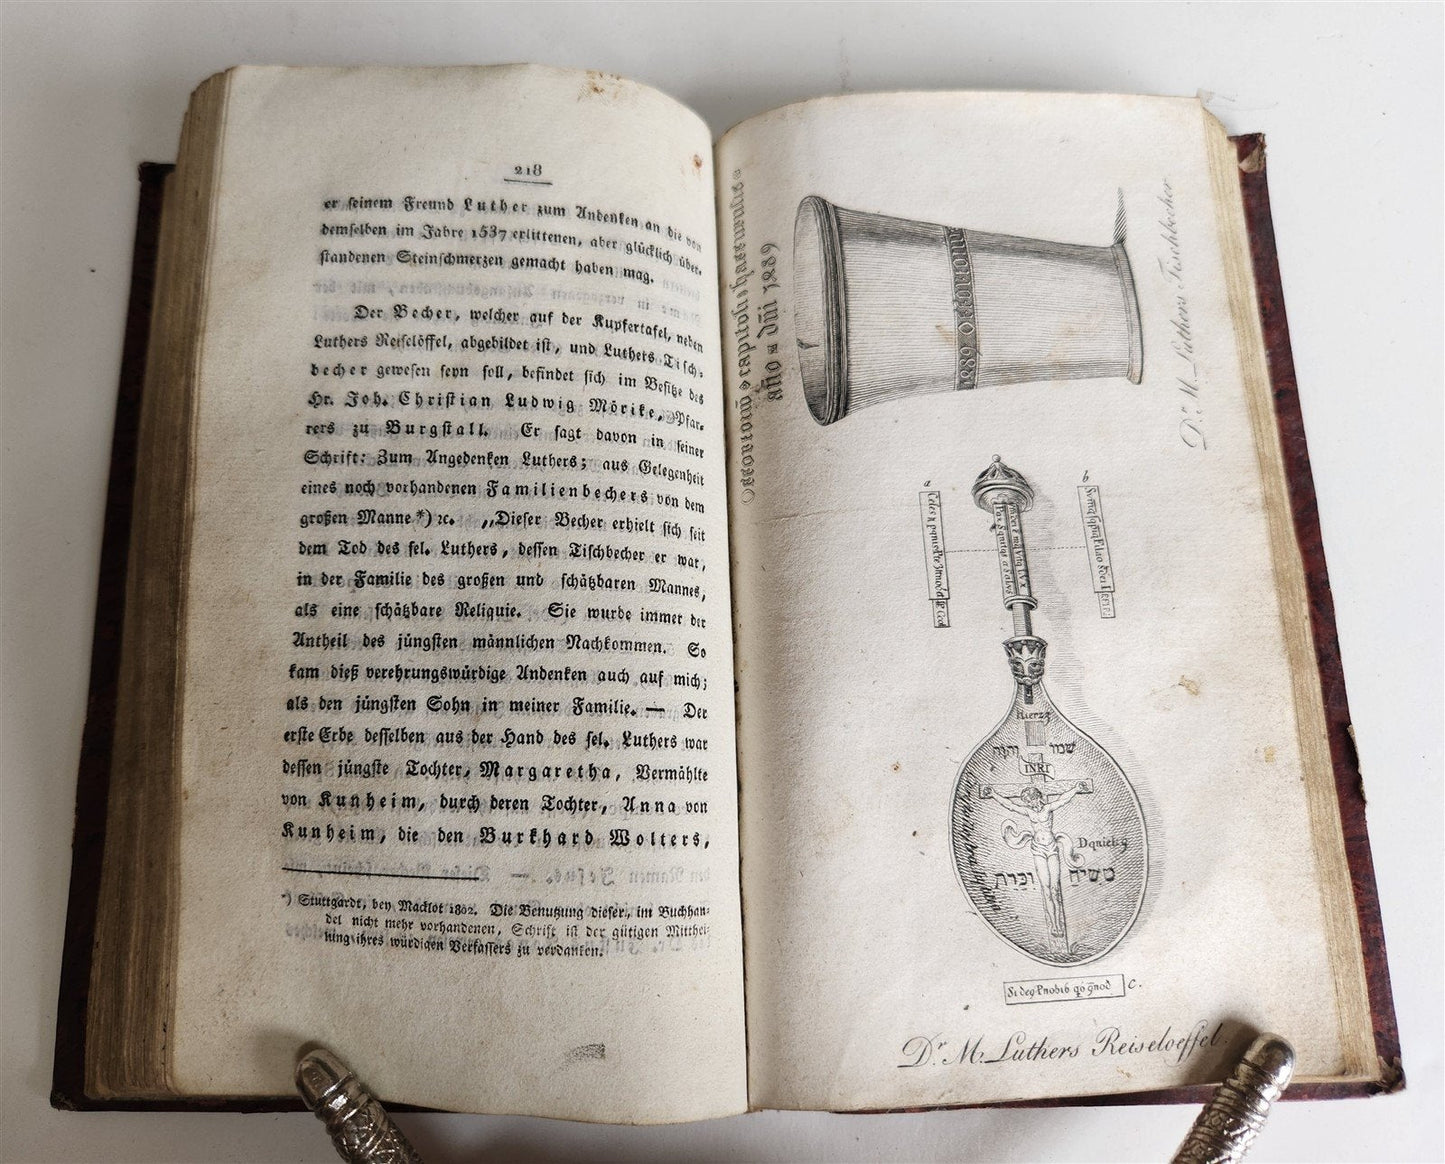 218
er seinem Freund Luther zum Andenken an die von
demselben im Jahre 1537 erlittenen, aber glücklich über-
standenen Steinschmerzen gemacht haben mag.
Der Becher, welcher auf der Kupfertafel, neben
Luthers Reiselöffel, abgebildet ist, und Luthers Tisch-
becher gewesen seyn soll, befindet sich im Besitze des
Hr. Joh. Christian Ludwig Mörike, Pfar-
rers zu Burgstall. Er sagt davon in seiner
Schrift: Zum Angedenken Luthers; aus Gelegenheit
eines noch vorhandenen Familienbechers von dem
großen Manne *) ꝛc. „Dieser Becher erhielt sich seit
dem Tod des sel. Luthers, dessen Tischbecher er war,
in der Familie des großen und schätzbaren Mannes,
als eine schätzbare Reliquie. Sie wurde immer der
Antheil des jüngsten männlichen Nachkommen. So
kam dieß verehrungswürdige Andenken auch auf mich;
als den jüngsten Sohn in meiner Familie. — Der
erste Erbe desselben aus der Hand des sel. Luthers war
dessen jüngste Tochter, Margaretha, Vermählte
von Kunheim, durch deren Tochter, Anna von
Kunheim, die den Burkhard Wolters,
*) Stuttgardt, bey Macklot 1802. Die Benutzung dieser, im Buchhan-
del nicht mehr vorhandenen, Schrift ist der gütigen Mitthei-
lung ihres würdigen Verfassers zu verdanken.
año dñi 1889
Dr. M. Luthers Tischbecher
a
b
INRI
משיח
C.
Dr. M. Luthers Reiseloeffel.